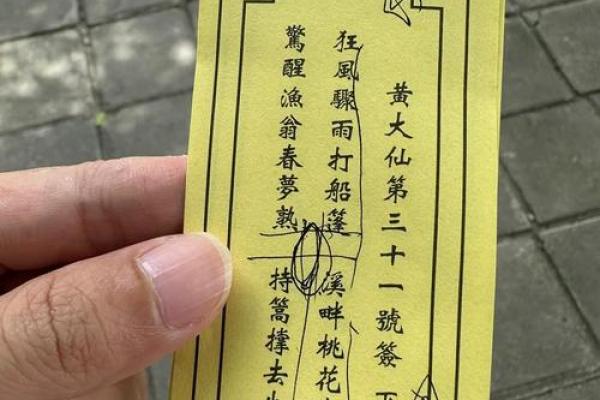 黃大仙第三十一號簽
狂風驟雨打船篷 溪畔桃花
驚醒漁翁春夢熟 持篙撑去